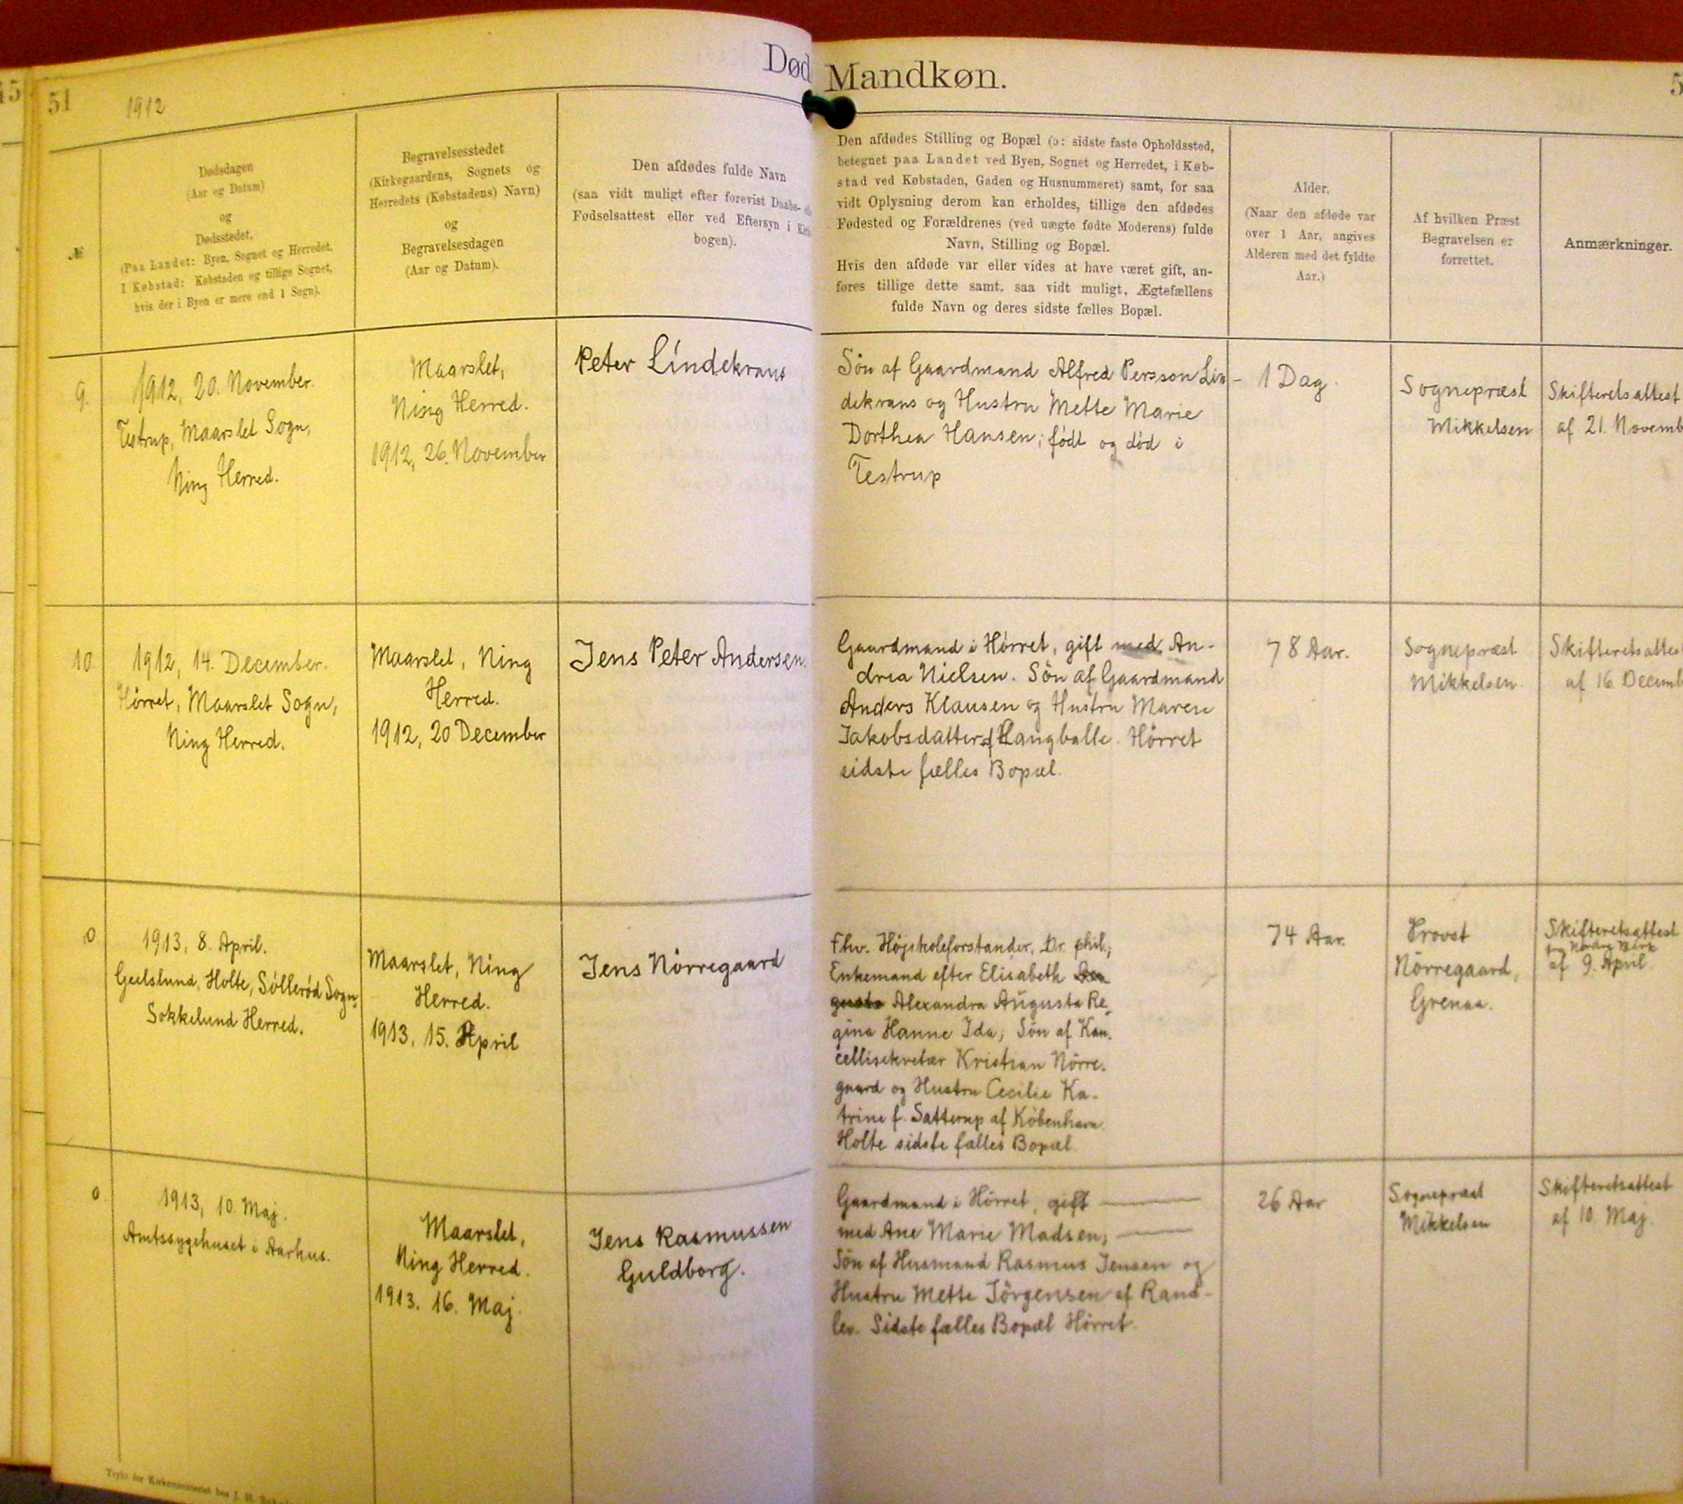 45
51
1912
Død
№
Dødsdagen
(Aar og Datum)
og
Dødsstedet.
(Paa Landet: Byen, Sognet og Herredet.
I Købstad: Købstaden og tillige Sognet,
hvis der i Byen er mere end 1 Sogn).
Begravelsesstedet
(Kirkegaardens, Sognets og
Herredets (Købstadens) Navn)
og
Begravelsesdagen
(Aar og Datum).
Den afdødes fulde Navn
(saa vidt muligt efter forevist Daabs-
Fødselsattest eller ved Eftersyn i
bogen).
9.
1912, 20. November.
Testrup, Maarslet Sogn,
Ning Herred.
Maarslet,
Ning Herred.
1912, 26. November
Peter Lindekrans
10
1912, 14. December.
Hørret, Maarslet Sogn,
Ning Herred.
Maarslet, Ning
Herred.
1912, 20 December
Jens Peter Andersen.
0
1913, 8. April.
Geelslund, Holte, Søllerød Sogn,
Sokkelund Herred.
Maarslet, Ning
Herred.
1913. 15. April
Jens Nörregaard
0
1913, 10. Maj.
Amtssygehuset i Aarhus.
Maarslet,
Ning Herred.
1913. 16. Maj.
Jens Rasmussen
Guldborg.
Mandkøn.
5
Den afdødes Stilling og Bopæl (ɔ: sidste faste Opholdssted,
betegnet paa Landet ved Byen, Sognet og Herredet, i Køb-
stad ved Købstaden, Gaden og Husnummeret) samt, for saa
vidt Oplysning derom kan erholdes, tillige den afdødes
Fødested og Forældrenes (ved uægte fødte Moderens) fulde
Navn, Stilling og Bopæl.
Hvis den afdøde var eller vides at have været gift, an-
føres tillige dette samt. saa vidt muligt, Ægtefællens
fulde Navn og deres sidste fælles Bopæl.
Alder.
(Naar den afdøde var
over 1 Aar, angives
Alderen med det fyldte
Aar.)
Af hvilken Præst
Begravelsen er
forrettet.
Anmærkninger.
Søn af Gaardmand Alfred Persson Lin-
dekrans og Hustru Mette Marie
Dorthea Hansen; født og død i
Testrup
1 Dag.
Sognepræst
Mikkelsen
Skifteretsattest
af 21. Novemb
Gaardmand i Hørret, gift med An-
drea Nielsen. Søn af Gaardmand
Anders Klausen og Hustru Maren
Jakobsdatter af Langballe. Hørret
sidste fælles Bopæl.
78 Aar.
Sognepræst
Mikkelsen.
Skifteretsattest
af 16. Decemb
Fhv. Højskoleforstander, Dr. phil,
Enkemand efter Elisabeth Au
gusta Alexandra Augusta Re-
gina Hanne Ida; Søn af Kan-
cellisekretær Kristian Nörre-
gaard og Hustru Cecilie Ka-
trine f. Satterup af København.
Holte sidste fælles Bopæl.
74 Aar.
Provst
Nörregaard,
Grenaa.
Skifteretsattest
af 9. April
Gaardmand i Hørret, gift
med Ane Marie Madsen;
Søn af Husmand Rasmus Jensen og
Hustru Mette Jörgensen af Rand-
lev. Sidste fælles Bopæl Hørret.
26 Aar
Sognepræst
Mikkelsen
Skifteretsattest
af 10. Maj.